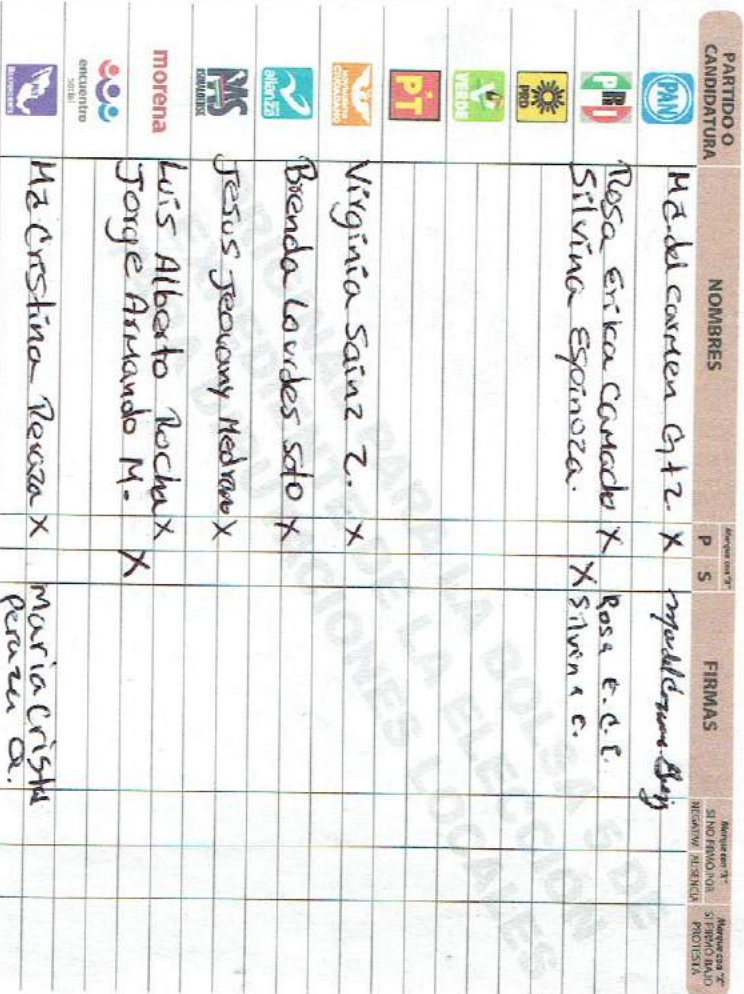 PARTIDO O CANDIDATURA NOMBRES Marque con "X" P S FIRMAS Marque con "X" SI NO FIRMÓ POR NEGATIVA AUSENCIA Marque con "X" SI FIRMÓ BAJO PROTESTA
PAN Ma. del carmen Gtz. X
PRI Rosa Erika Camacho X Rosa E. C. C.
Silvina Espinoza. X Silvina E.
PRD
VERDE
PT
MOVIMIENTO CIUDADANO Virginia Sainz Z. X
alianza Brenda Lourdes Soto X
PAS Jesus Jeovany Medrano X
morena Luis Alberto Rocha X
Jorge Armando M. X
encuentro social
Ma Cristina Peraza X Maria Cristi
Peraza O.
ORIGINAL PARA LA BOLSA S DE
EXPEDIENTE DE LA ELECCIÓN
PARA DIPUTACIONES LOCALES